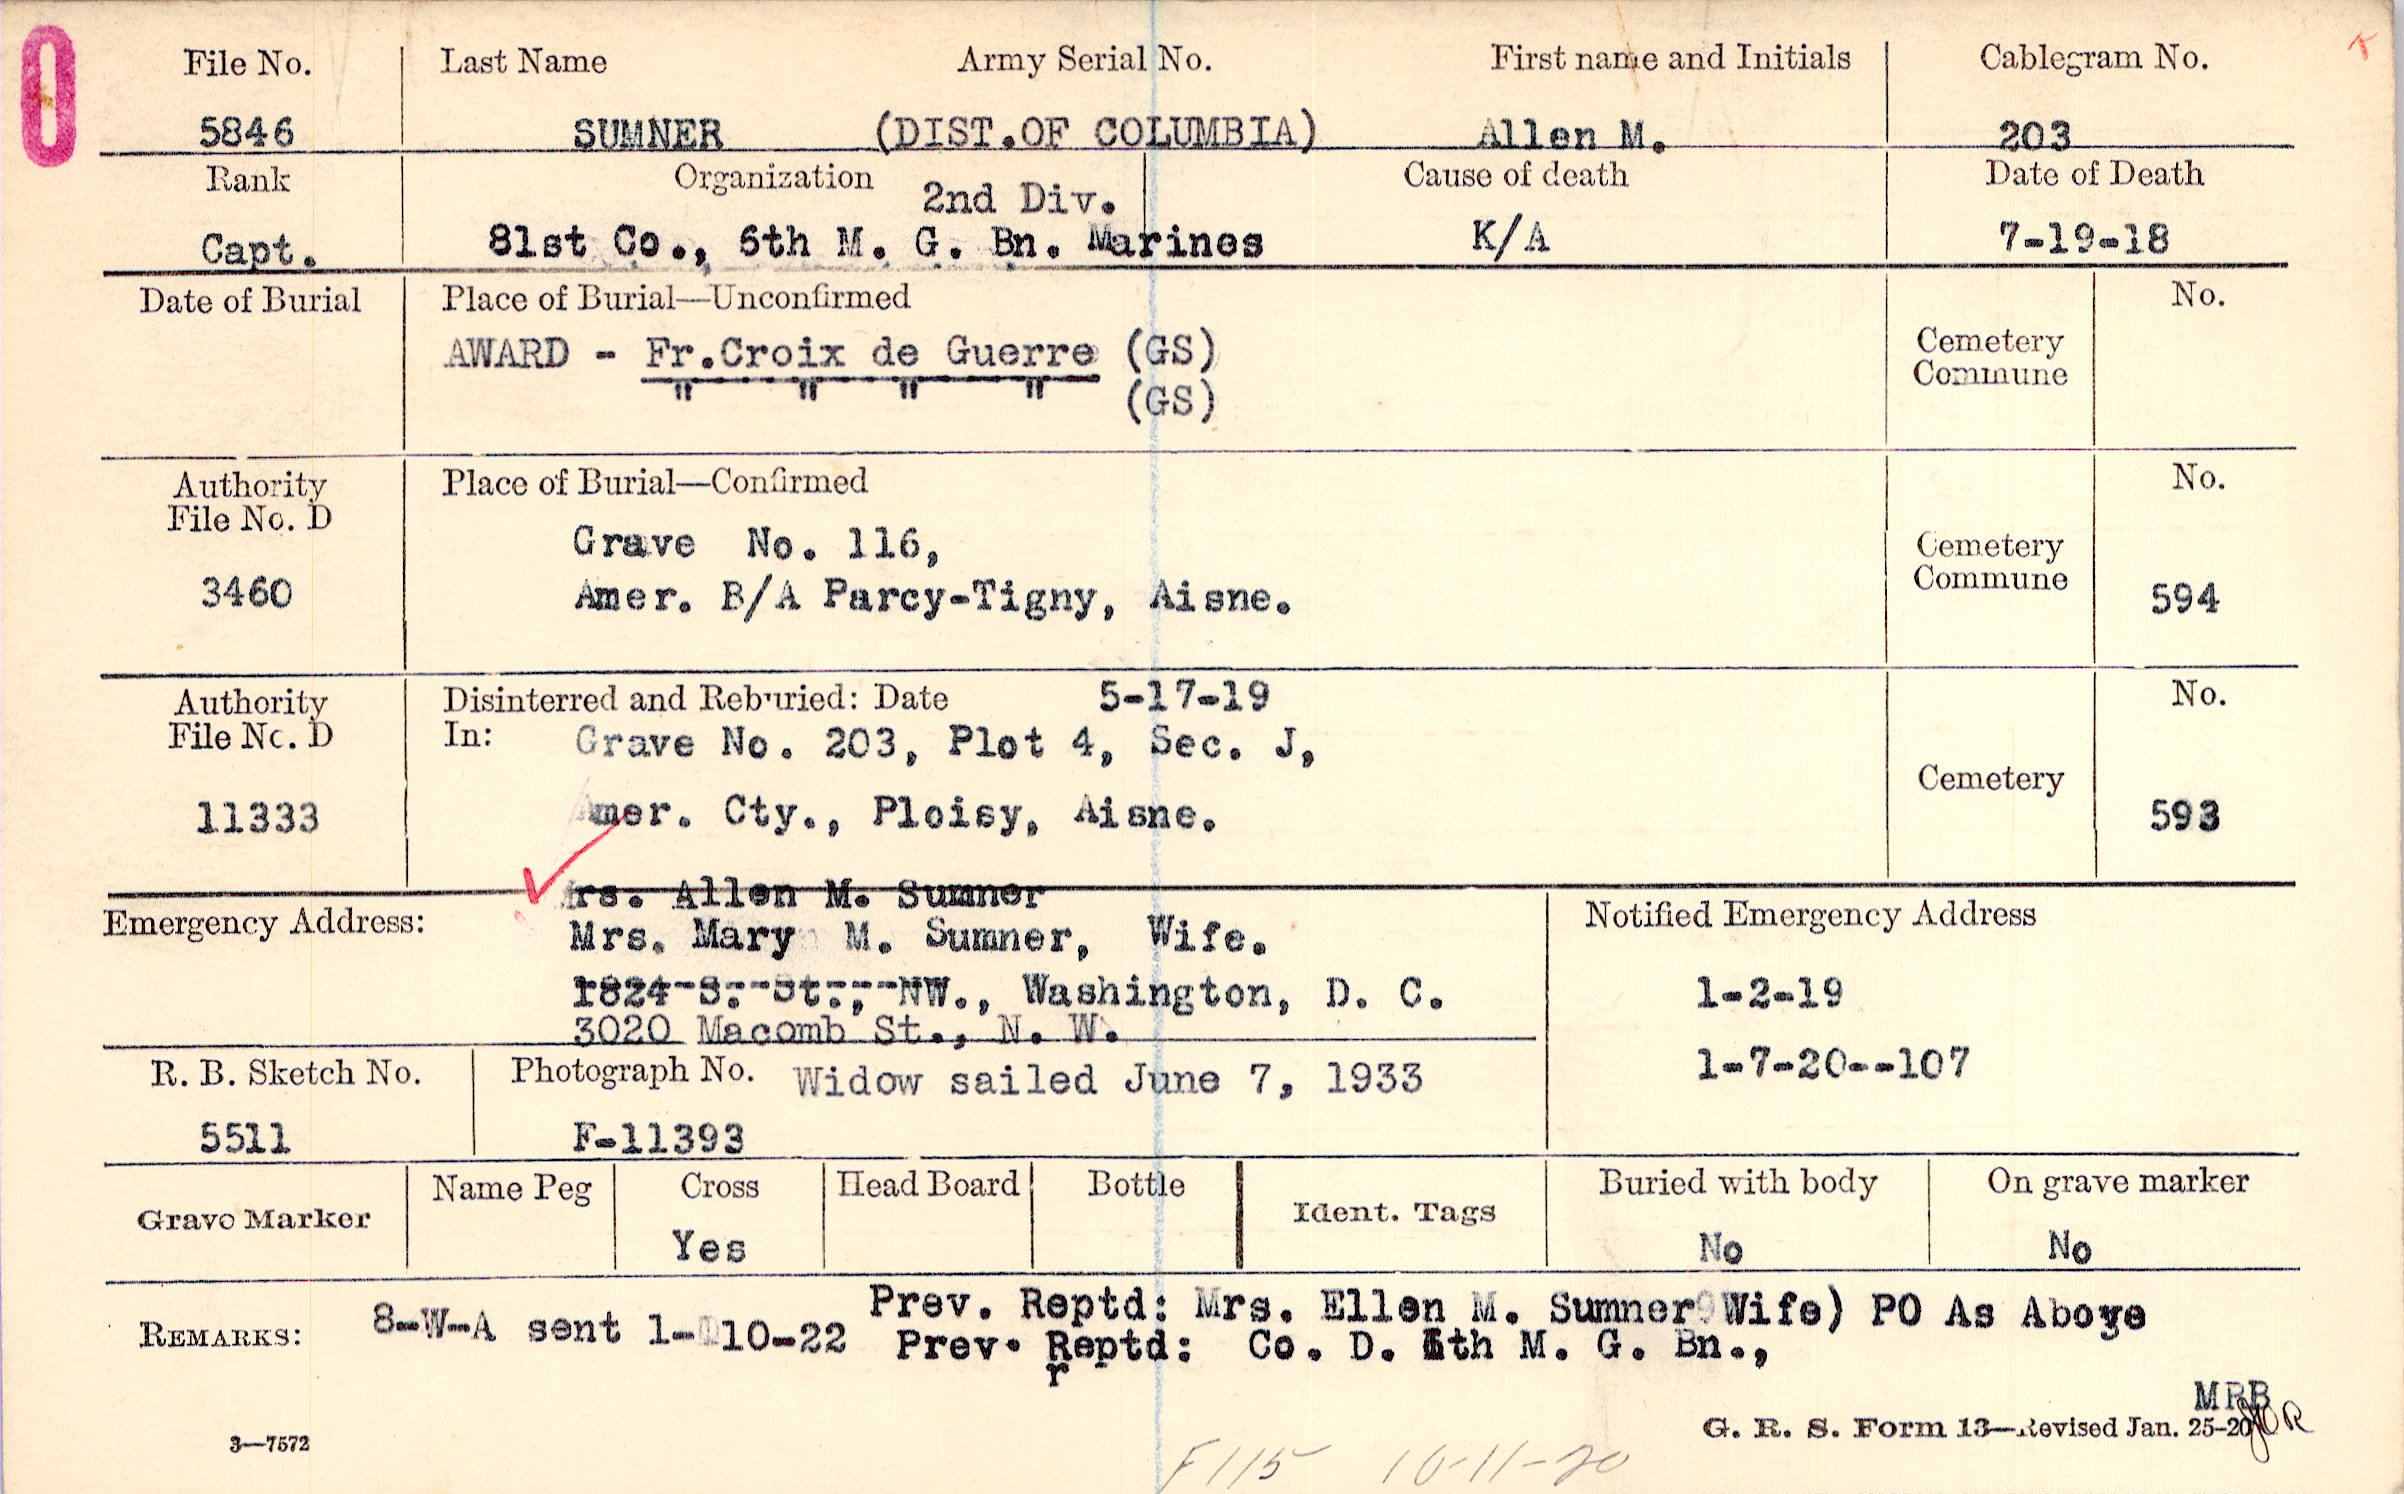 0
File No. Last Name Army Serial No. First name and Initials Cablegram No.
5846 SUMNER (DIST.OF COLUMBIA) Allen M. 203
Rank Organization Cause of death Date of Death
2nd Div.
Capt. 81st Co., 6th M. G. Bn. Marines K/A 7-19-18
Date of Burial Place of Burial—Unconfirmed No.
AWARD - Fr.Croix de Guerre (GS)
" " " " (GS)
Cemetery
Commune
Authority Place of Burial—Confirmed No.
File No. D
Grave No. 116,
Cemetery
Commune
3460 Amer. B/A Parcy-Tigny, Aisne. 594
Authority Disinterred and Reburied: Date 5-17-19 No.
File No. D In: Grave No. 203, Plot 4, Sec. J,
Cemetery
11333 Amer. Cty., Ploisy, Aisne. 593
Mrs. Allen M. Sumner
Emergency Address: Mrs. Mary M. Sumner, Wife. Notified Emergency Address
1824 S. St., NW., Washington, D. C. 1-2-19
3020 Macomb St., N. W.
1-7-20--107
R. B. Sketch No. Photograph No. Widow sailed June 7, 1933
5511 F-11393
Grave Marker Name Peg Cross Head Board Bottle Ident. Tags Buried with body On grave marker
Yes No No
Prev. Reptd: Mrs. Ellen M. Sumner Wife) PO As Above
REMARKS: 8-W-A sent 1-10-22 Prev. Reptd: Co. D. 6th M. G. Bn.,
r
MRB
G. R. S. Form 13—Revised Jan. 25-20
3—7572
F115 10-11-20